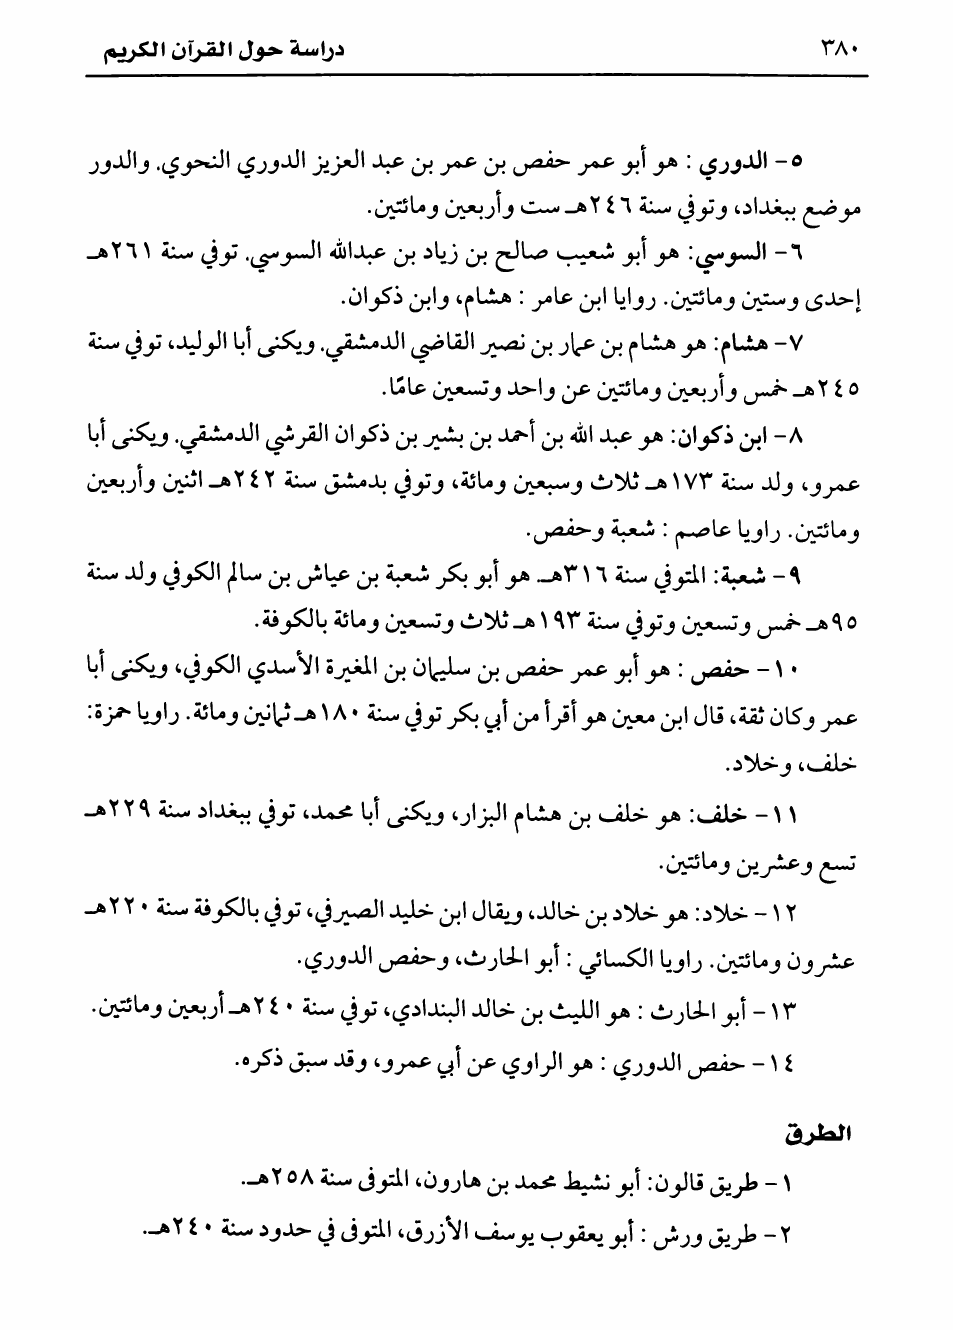 ٣٨٠
دراسة حول القرآن الكريم
٥- الدوري : هو أبو عمر حفص بن عمر بن عبد العزيز الدوري النحوي. والدور
موضع ببغداد، وتوفي سنة ٢٤٦هـ ست وأربعين ومائتين.
٦- السوسي: هو أبو شعيب صالح بن زياد بن عبدالله السوسي. توفي سنة ٢٦١هـ
إحدى وستين ومائتين. روايا ابن عامر : هشام، وابن ذكوان.
٧- هشام: هو هشام بن عمار بن نصير القاضي الدمشقي. ويكنى أبا الوليد، توفي سنة
٢٤٥هـ خمس وأربعين ومائتين عن واحد وتسعين عامًا.
٨- ابن ذكوان: هو عبد الله بن أحمد بن بشير بن ذكوان القرشي الدمشقي. ويكنى أبا
عمرو، ولد سنة ١٧٣هـ ثلاث وسبعين ومائة، وتوفي بدمشق سنة ٢٤٢هـ اثنين وأربعين
ومائتين. راويا عاصم : شعبة وحفص.
٩- شعبة: المتوفي سنة ٣١٦هـ هو أبو بكر شعبة بن عياش بن سالم الكوفي ولد سنة
٩٥هـ خمس وتسعين وتوفي سنة ١٩٣هـ ثلاث وتسعين ومائة بالكوفة.
١٠- حفص : هو أبو عمر حفص بن سليمان بن المغيرة الأسدي الكوفي، ويكنى أبا
عمر وكان ثقة، قال ابن معين هو أقرأ من أبي بكر توفي سنة ١٨٠هـ ثمانين ومائة. راويا حمزة:
خلف، وخلاد.
١١- خلف: هو خلف بن هشام البزار، ويكنى أبا محمد، توفي ببغداد سنة ٢٢٩هـ
تسع وعشرين ومائتين.
١٢- خلاد: هو خلاد بن خالد، ويقال ابن خليد الصيرفي، توفي بالكوفة سنة ٢٢٠هـ
عشرون ومائتين. راويا الكسائي : أبو الحارث، وحفص الدوري.
١٣- أبو الحارث : هو الليث بن خالد البندادي، توفي سنة ٢٤٠هـ أربعين ومائتين.
١٤- حفص الدوري : هو الراوي عن أبي عمرو، وقد سبق ذكره.
الطرق
١- طريق قالون: أبو نشيط محمد بن هارون، المتوفى سنة ٢٥٨هـ.
٢- طريق ورش : أبو يعقوب يوسف الأزرق، المتوفى في حدود سنة ٢٤٠هـ.